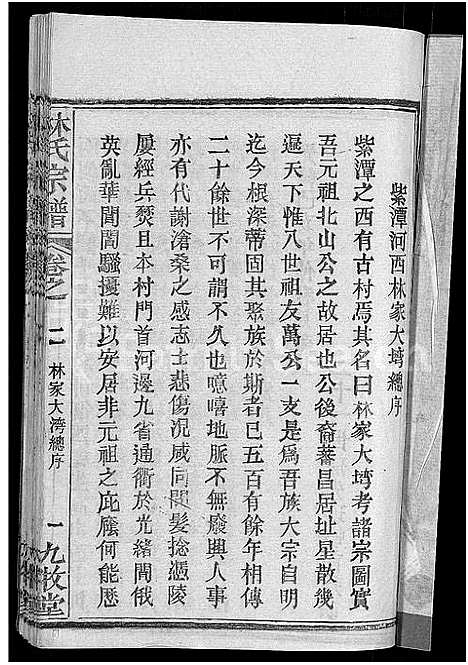 紫潭河西林家大塆總序
紫潭之西有古村焉其名曰林家大塆考諸宗圖實
吾元祖北山公之故居也公後裔蕃昌居址星散幾
遍天下惟八世祖友萬公一支是爲吾族大宗自明
迄今根深蒂固其聚族於斯者已五百有餘年相傳
二十餘世不可謂不久也噫嘻地脈不無廢興人事
亦有代謝滄桑之感志士悲傷況咸同間髮捻憑陵
屢經兵燹且本村門首河邊九省通衢於光緒間俄
英亂華閭閻騷擾難以安居非元祖之庇廕何能歷
林氏宗譜
卷之二
林家大湾總序
一
九牧堂